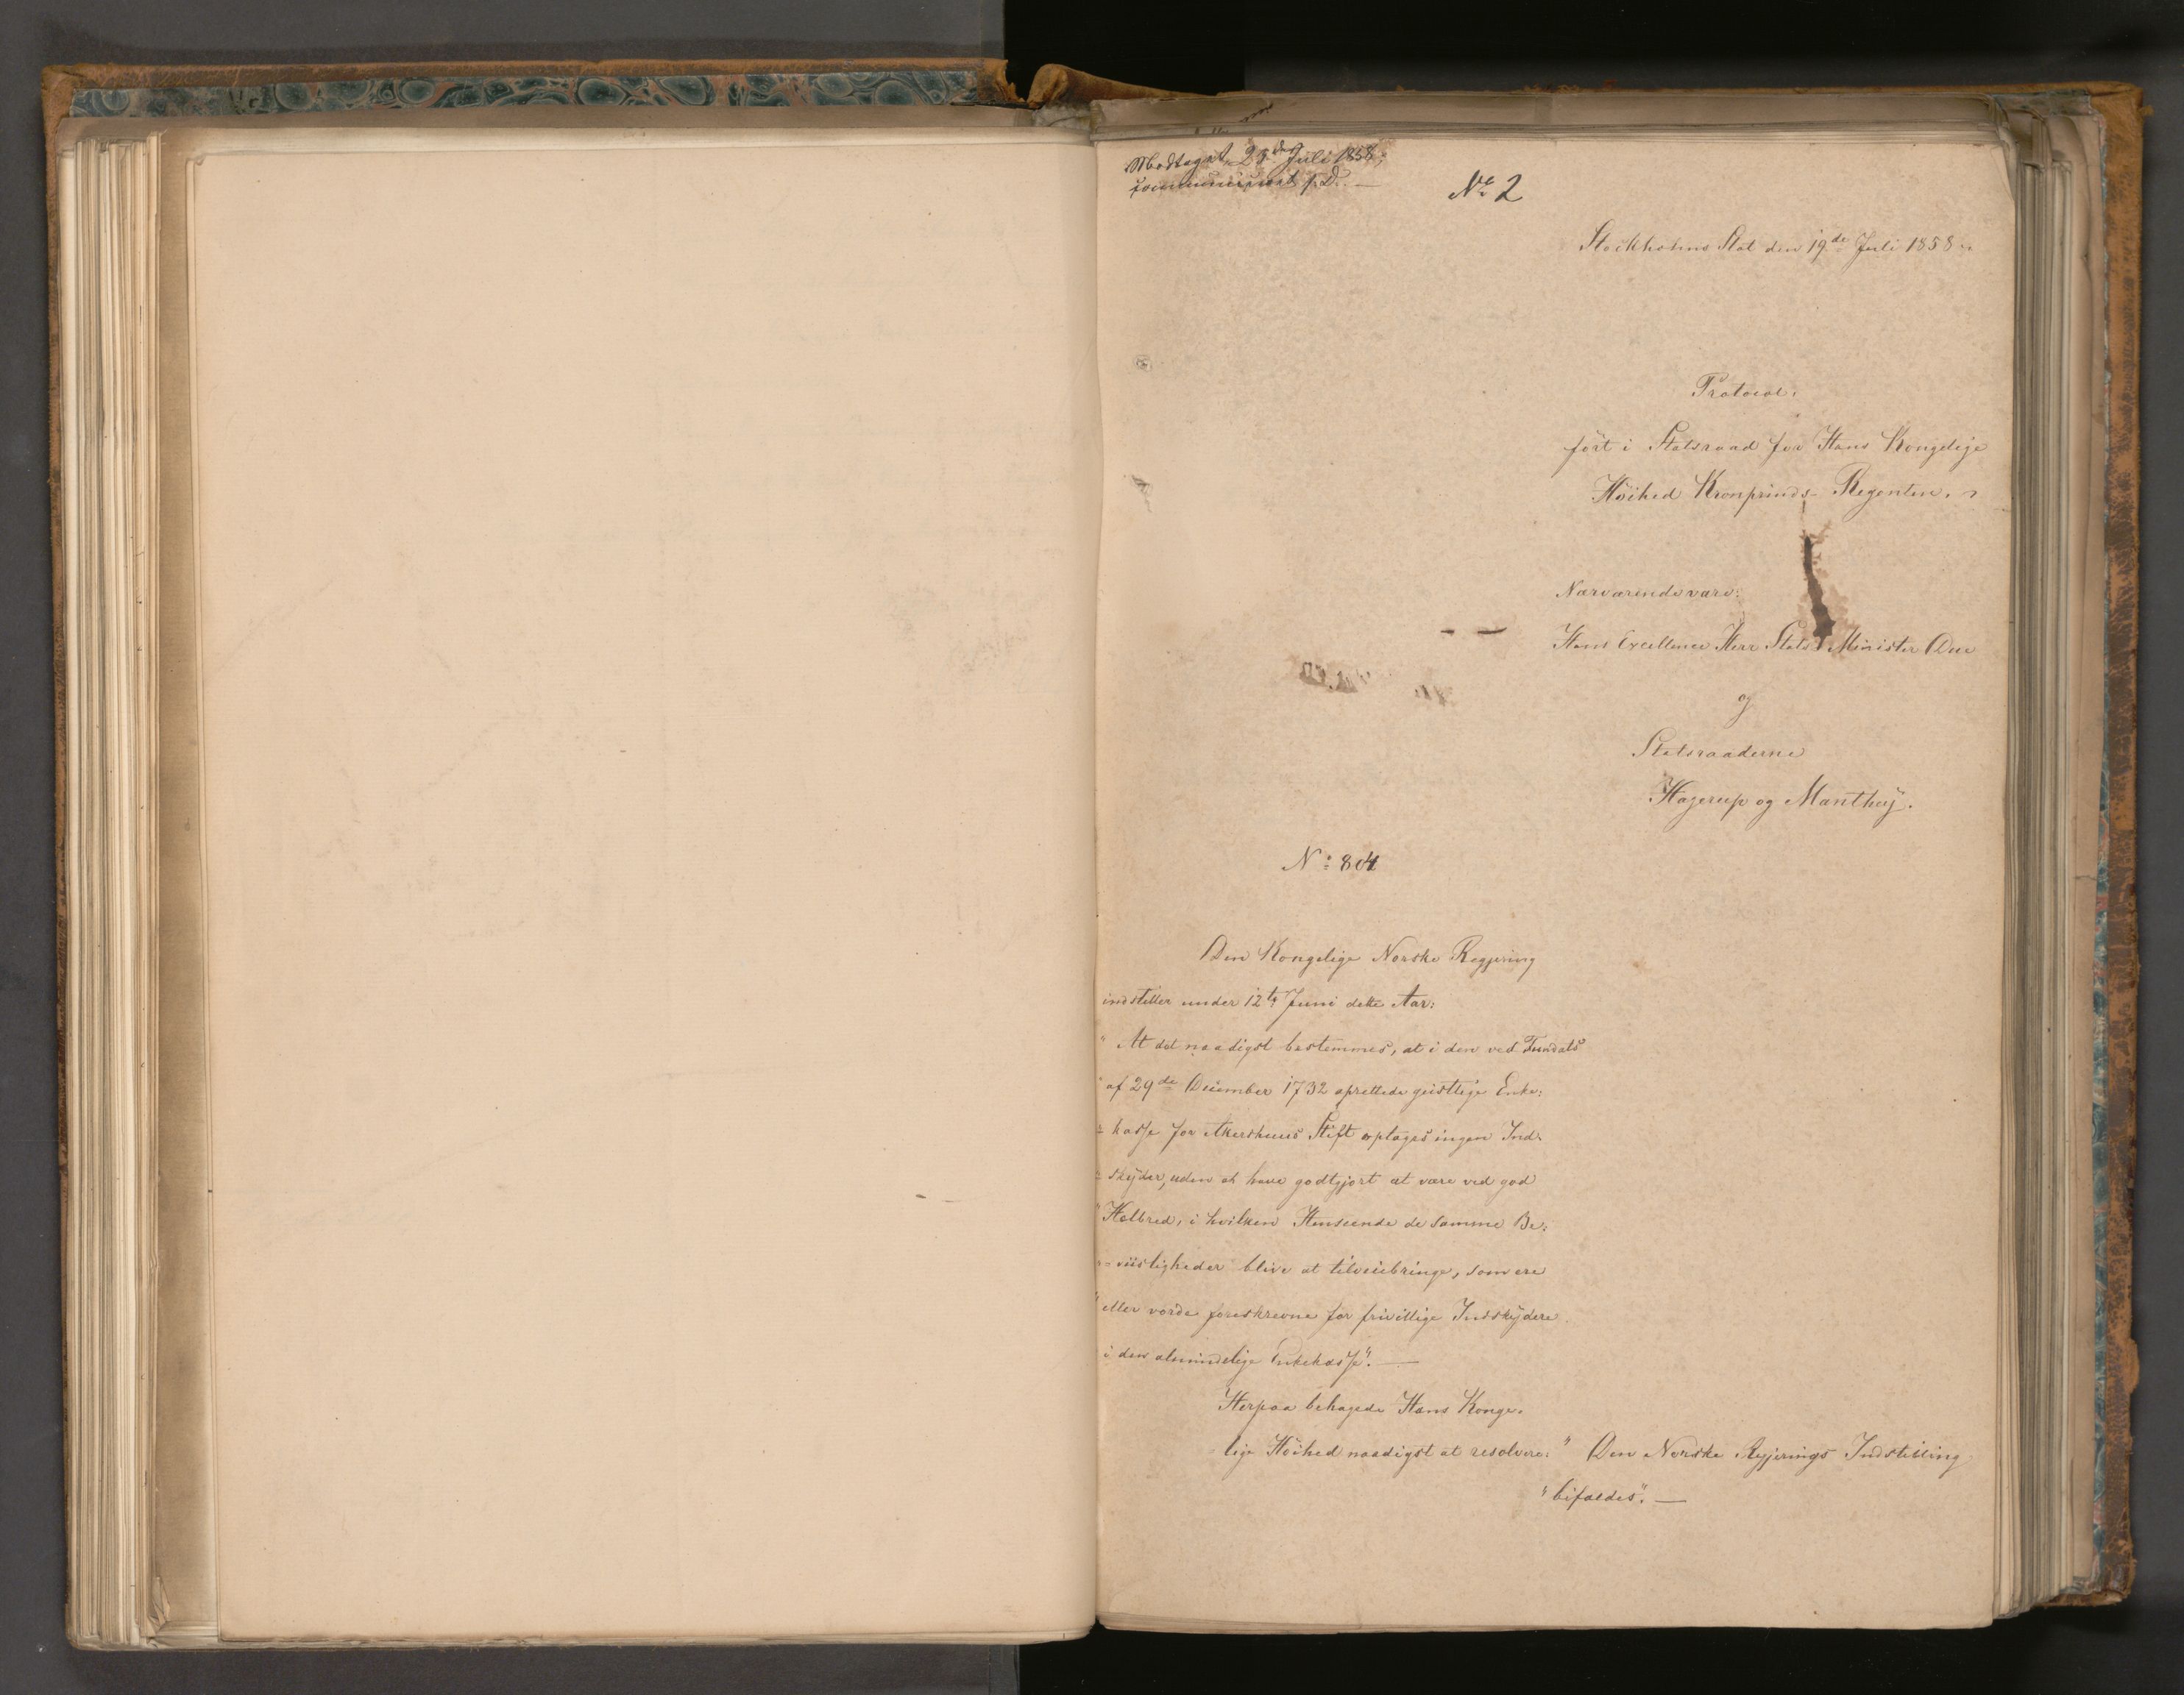 Modtaget 23de Juli 1858,
communiceret s. D. —
No 2
Stockholms Slot den 19de Juli 1858.
Protocol,
fört i Statsraad for Hans Kongelige
Höihed Kronprinds-Regenten.
Nærværende vare:
Hans Excellence Herr Stats Minister Due
og
Statsraaderne
Hagerup og Manthey.
No 804
Den Kongelige Norske Regjering
indstiller under 12te Juni dette Aar:
"At det naadigst bestemmes, at i den ved Fundats
"af 29de December 1732 oprettede geistlige Enke-
"kasse for Akershuus Stift optages ingen Ind-
"skyder, uden at have godtgjort at være ved god
"Helbred, i hvilken Henseende de samme Be-
"-viisligheder blive at tilveiebringe, som ere
"eller vorde foreskrevne for frivillige Indskydere
i den almindelige Enkekasse". —
Herpaa behagede Hans Konge-
-lige Höihed naadigst at resolvere: "Den Norske Regjerings Indstilling
"bifaldes". —